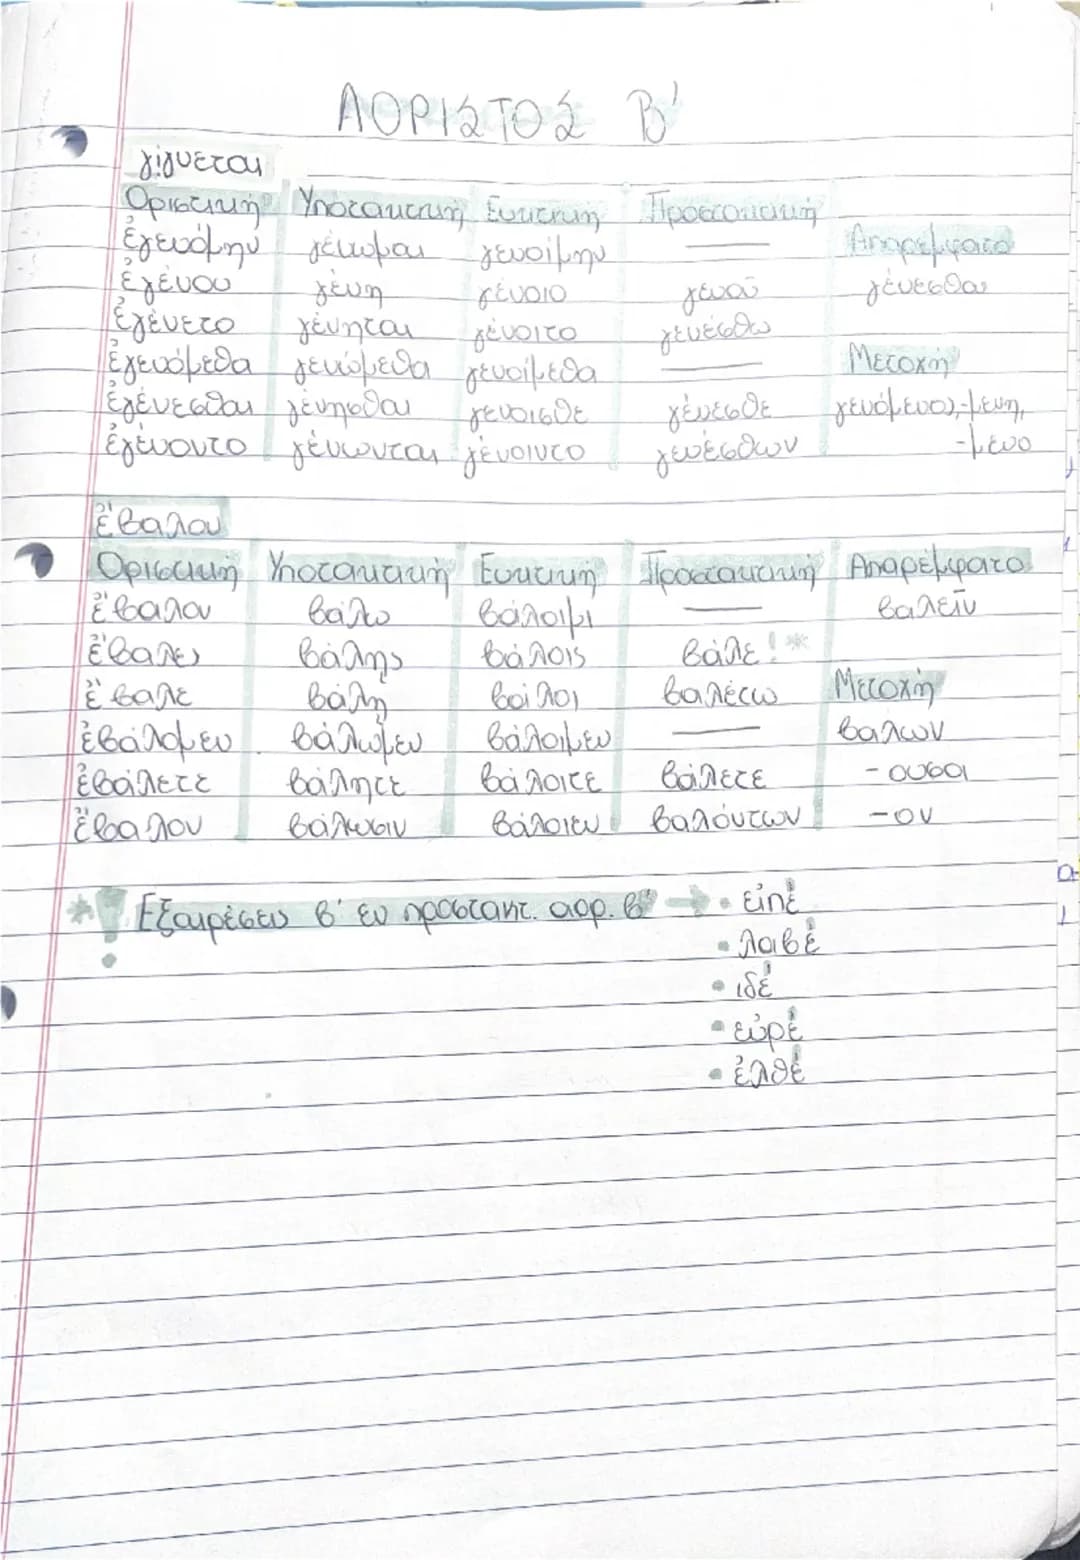 ΑΟΡΙΣΤΟΣ Β'
γίγνεται
Οριστική Υποτακτική Ευκτική Προστακτική
ἐγενόμην γένωμαι γενοίμην — Απαρέμφατο
ἐγένου γένη γένοιο γενοῦ γένεσθαι
ἐγένετο γένηται γένοιτο γενέσθω
ἐγενόμεθα γενώμεθα γενοίμεθα — Μετοχή
ἐγένεσθαι γένησθαι γένοισθε γένεσθε γενόμενος,-μενη,
ἐγένοντο γένωνται γένοιντο γενέσθων -μενο
ἔβαλον
Οριστική Υποτακτική Ευκτική Προστακτική Απαρέμφατο
ἔβαλον βάλω βάλοιμι — βαλεῖν
ἔβαλες βάλης βάλοις βάλε! *
ἔβαλε βάλη βάλοι βαλέτω Μετοχή
ἐβάλομεν βάλωμεν βάλοιμεν — βαλων
ἐβάλετε βάλητε βάλοιτε βάλετε -ουσα
ἔβαλον βάλωσιν βάλοιεν βαλόντων -ον
*! Εξαιρέσεις β' εν προστακτ. αορ. β' → • εἰπέ
• λαβέ
• ιδέ
• εὑρέ
• ἐλθέ